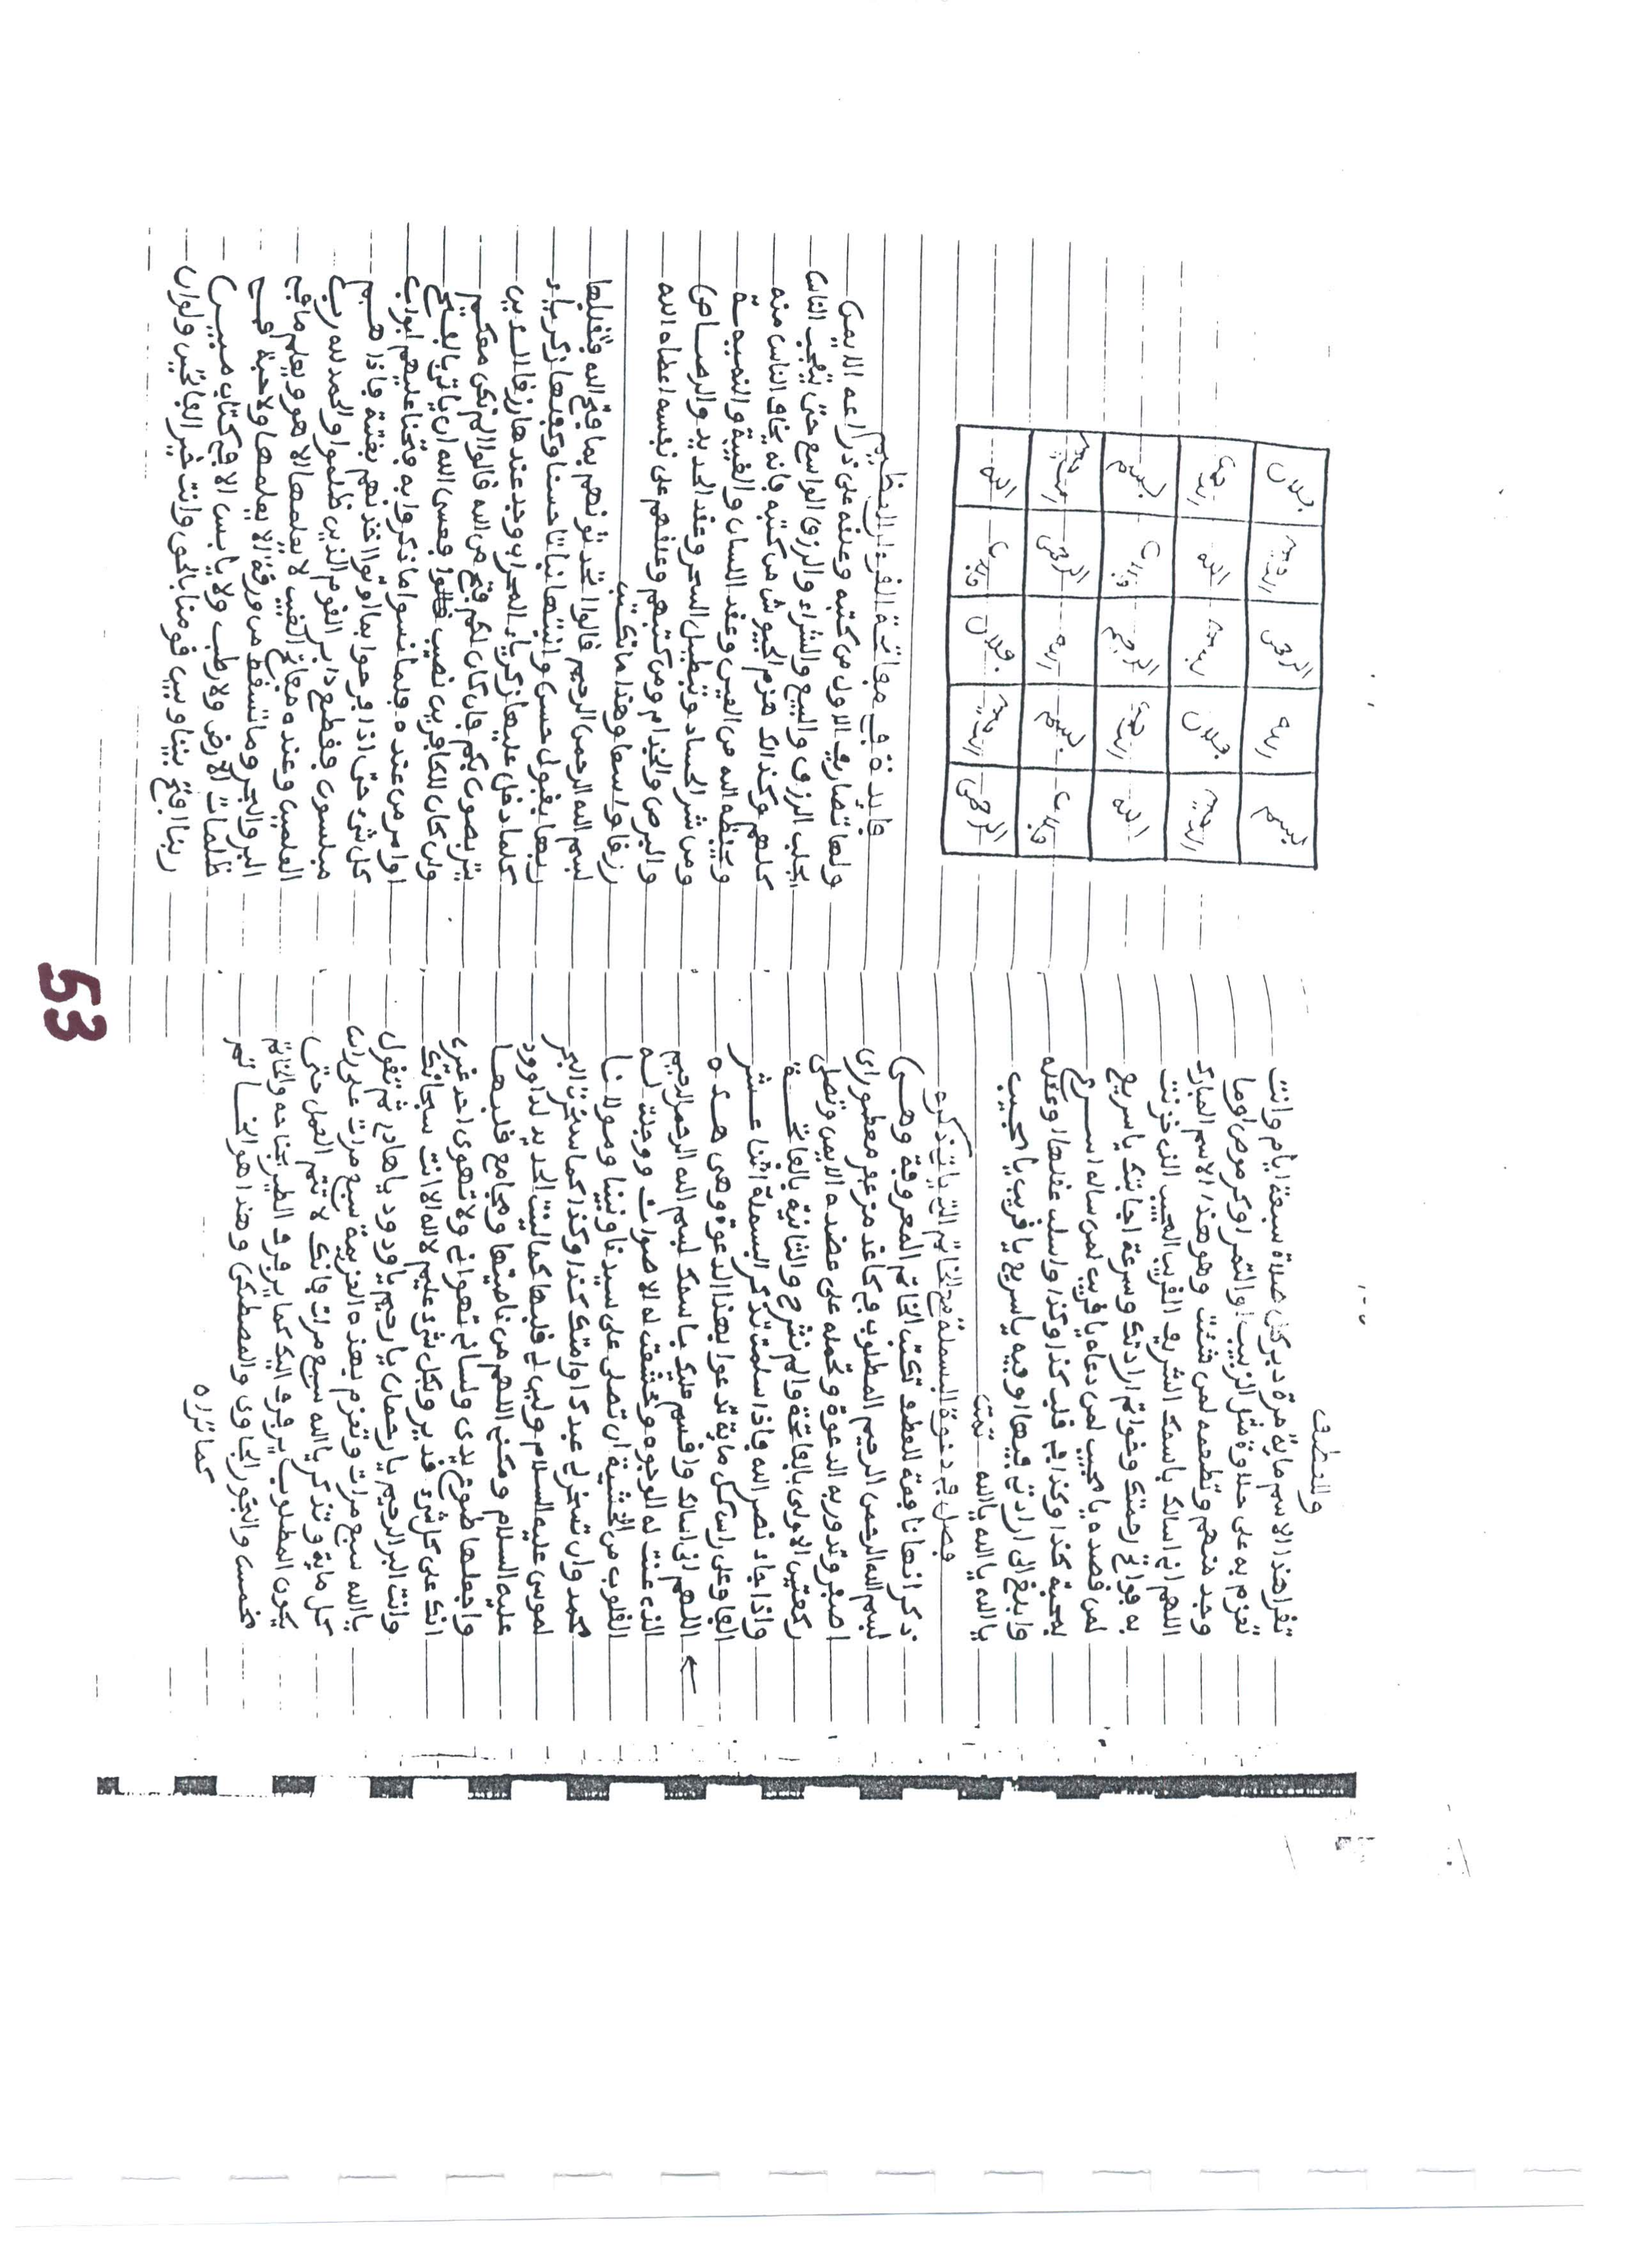 وللعطف
تقرا هذا الاسم ماية مرة دبر كل صلاة سبعة ايام وانت
تعزم به على حلاوة مثل الزبيب او التمر او كرموص اوما
وجد منهم وتطعمه لمن شئت وهو هذا الاسم المبارك
اللهم اني اسالك باسمك الشريف القريب المجيب الذي خزنت
به فواتح رحمتك وخواتم ارادتك وسرعة اجابتك يا سريع
لمن قصده يا مجيب لمن دعاه يا قريب لمن ساله اسرع
بمحبة كذا وكذا في قلب كذا وكذا واسلب عقلها او عقله
وابلغ الى ارادتي فيها او فيه يا سريع يا قريب يا مجيب
يا الله يا الله يا الله تمت
فصل في دعوة البسملة مع الخاتم التي ياتي ذكره
ذكر انها نافعة للعطف تكتب الخاتم المعروفة وهي
بسم الله الرحمن الرحيم المطلوب في كاغد مزعفر معطر اي
اصفر وتدور به الدعوة وتحمله على عضده الايمن وتصلي
ركعتين الاولى بالفاتحة والم نشرح والثانية بالفاتحة
واذا جاء نصر الله فاذا سلمت تذكر البسملة اثنا عشر
الفا وعلى راس كل ماية تدعوا بهذا الدعوة وهي هذه
اللهم اني اسالك واقسم عليك باسمك بسم الله الرحمن الرحيم
الذي عنت له الوجوه وخشعت له الاصوات ووجلت له
القلوب من الخشية ان تصلي على سيدنا ونبينا ومولانا
محمد وان تسخر لي عبدك او امتك كذا وكذا كما سخرت البحر
لموسى عليه السلام ولين لي قلبها كما لينت الحديد لداوود
عليه السلام ومكني اللهم من ناصيتها ومجامع قلبها
واجعلها طوع يدي ولساني تهواني ولا تهوى احد غيري
انك على كل شيء قدير وبكل شيء عليم لا اله الا انت سبحانك
وانت البر الرحيم يا رحمان يا رحيم يا ودود يا هادي ثم تقول
يا الله سبع مرات وتعزم بهذه العزيمة سبع مرات على راس
كل ماية وتذكر يا الله سبع مرات فانك لا تتم العمل حتى
يكون المطلوب يرفرف اليك كما يرفرف الطير بجناحه والخاتم
مخمس والبخور الجاوي والمصطكى وهذا هو الخاتم
كما تراه
بسم الله الرحمن الرحيم فلان
فايدة في مفاتحة القرءان العظيم
ولها تصاريف الاول من كتبه وعلقه على ذراعه الايمن
لجلب الرزق والبيع والشراء والرزق الواسع حتى يتعجب الناس
كلهم وكذالك هزم الجيوش من كتبه فانه يخاف الناس منه
ويحفظه الله من العين وعقد اللسان والغيبة والنميمة
ومن شر الحساد وتبطيل السحر وعقد الحديد والرصاص
والبرص والجذام ومن كتبهم وعلقهم على نفسه اعطاه الله
رزقا واسعا وهذا ما تكتب
بسم الله الرحمن الرحيم قالوا اتحدثونهم بما فتح الله فتقبلها
ربها بقبول حسن وانبتها نباتا حسنا وكفلها زكرياء
كلما دخل عليها زكرياء المحراب وجد عندها رزقا الذين
يتربصون بكم فان كان لكم فتح من الله قالوا الم نكن معكم
وان كان للكافرين نصيب قالوا فعسى الله ان ياتي بالفتح
او امر من عنده فلما نسوا ما ذكروا به فتحنا عليهم ابواب
كل شيء حتى اذا فرحوا بما اوتوا اخذنهم بغتة فاذا هم
مبلسون فقطع دابر القوم الذين ظلموا والحمد لله رب
العلمين وعنده مفاتح الغيب لا يعلمها الا هو ويعلم ما في
البر والبحر وما تسقط من ورقة الا يعلمها ولا حبة في
ظلمات الارض ولا رطب ولا يابس الا في كتاب مبين
ربنا افتح بيننا وبين قومنا بالحق وانت خير الفاتحين ولوان
53